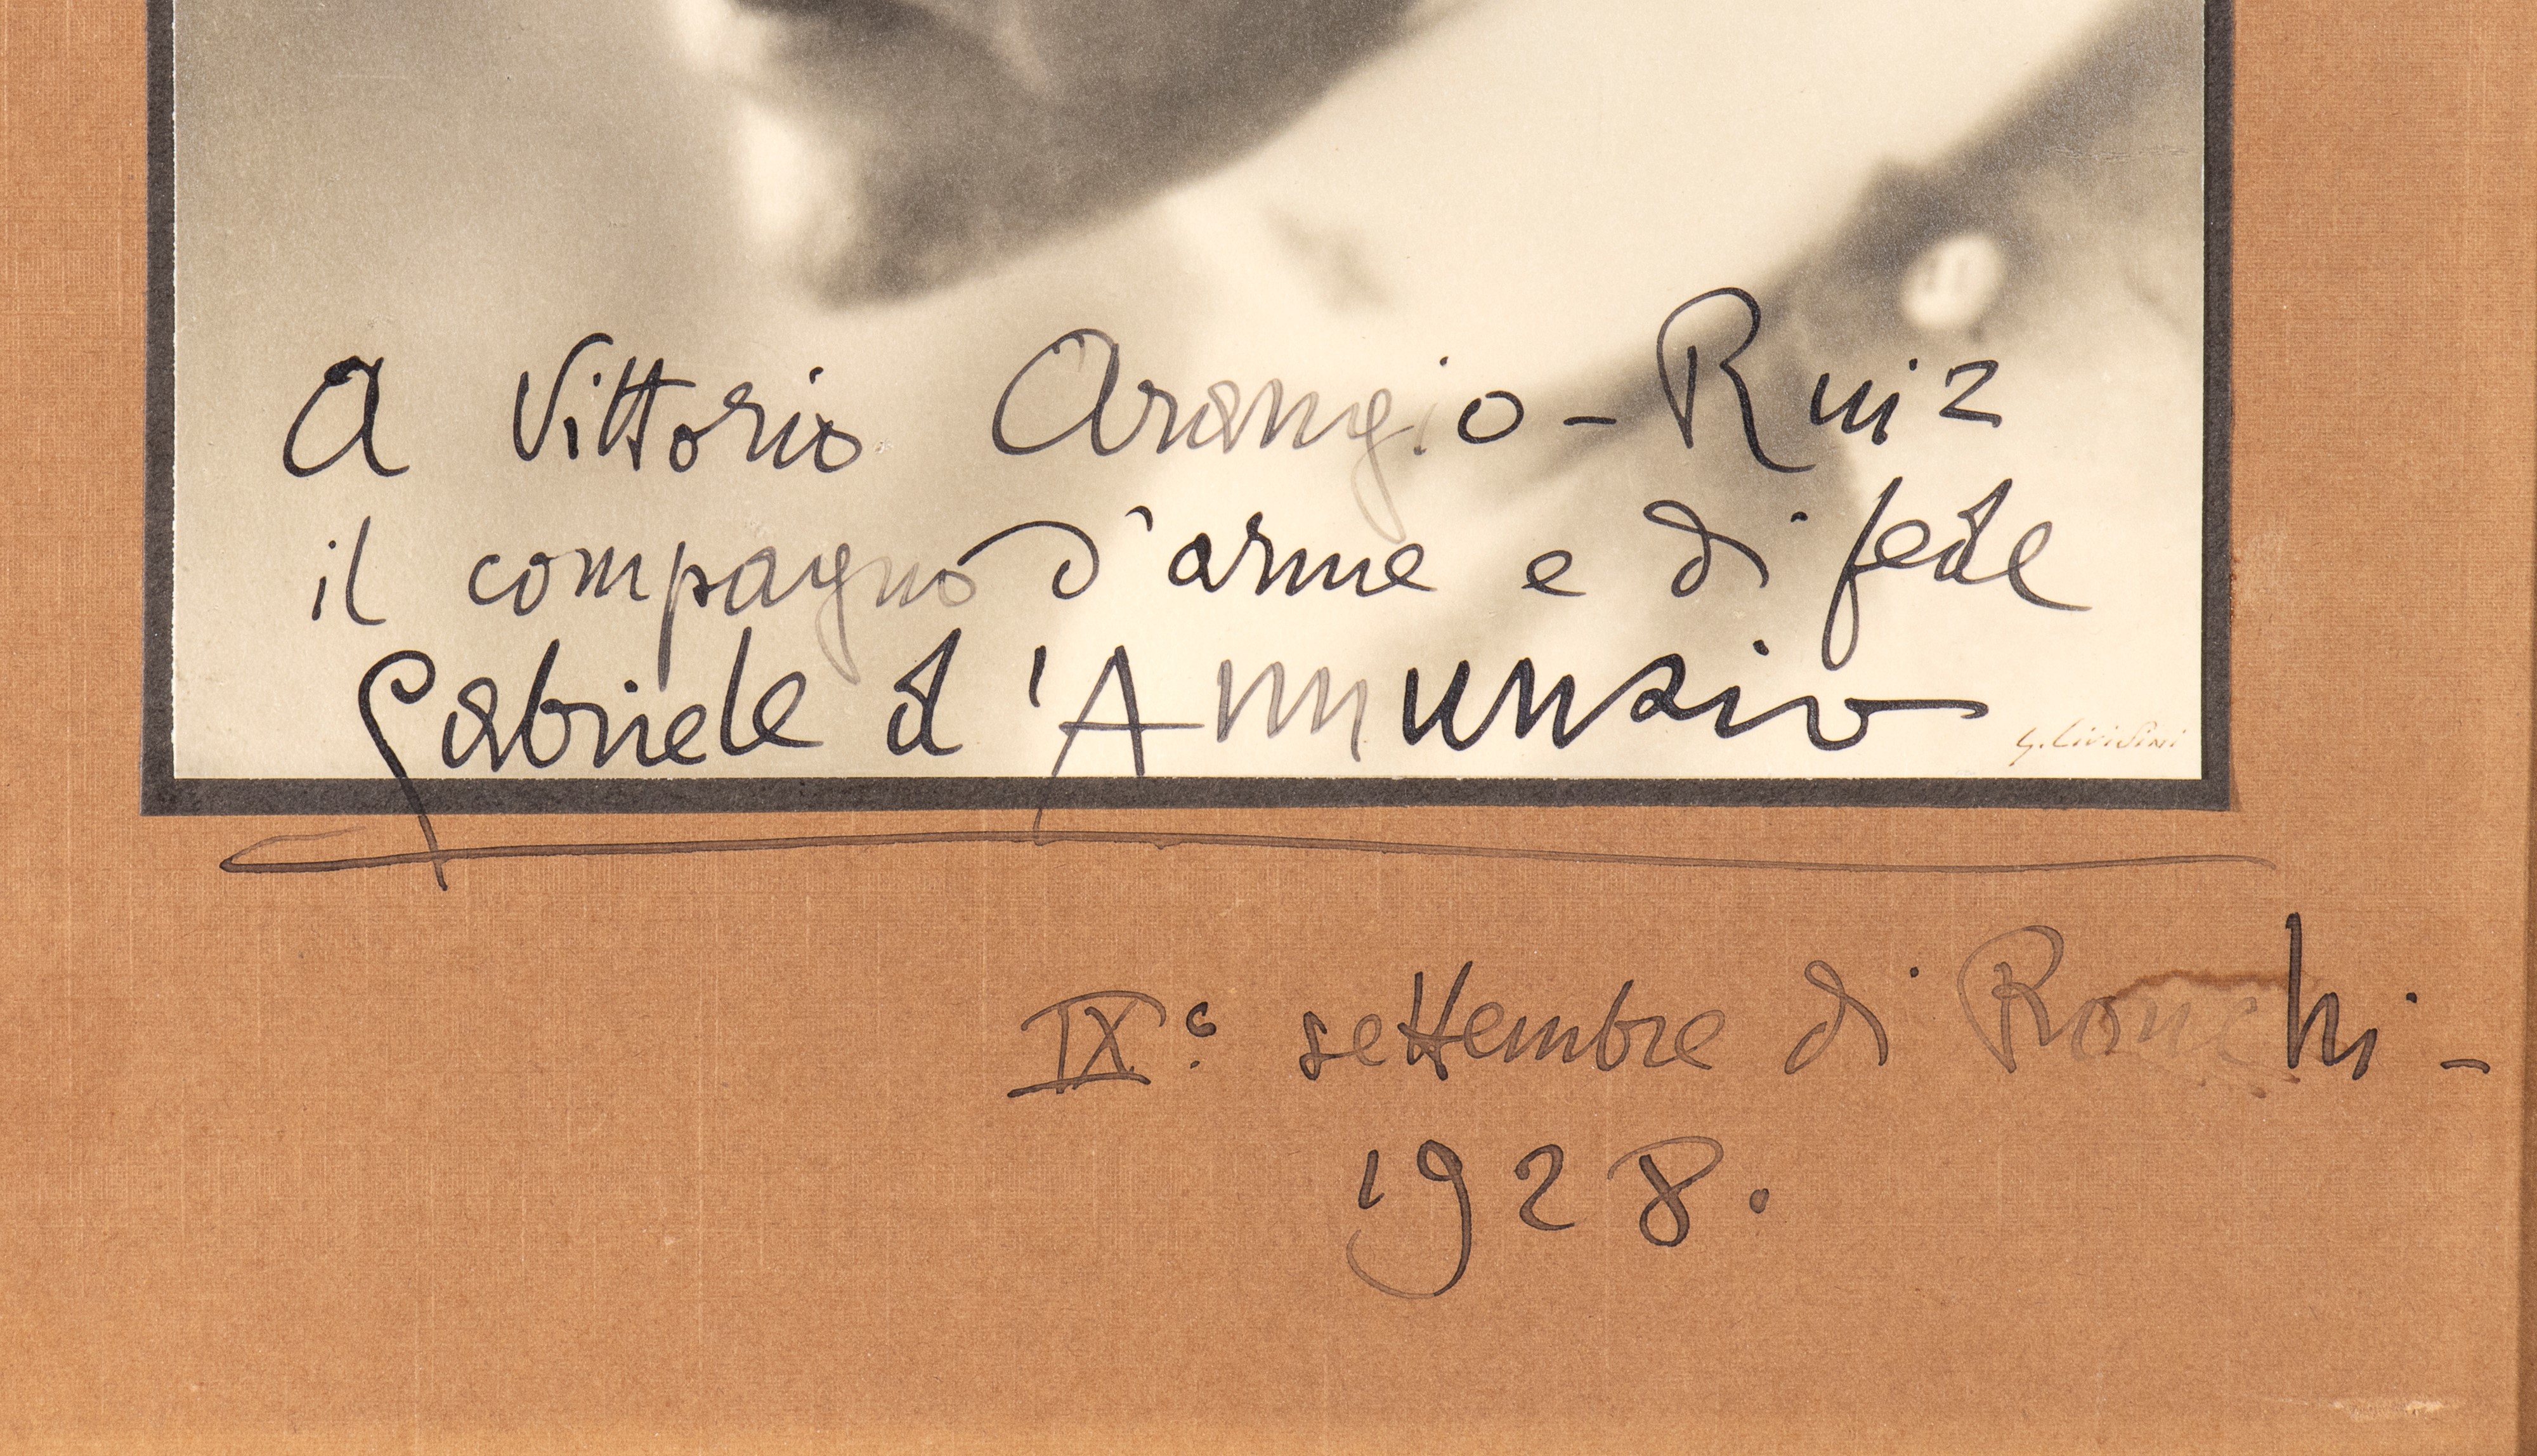 A Vittorio Arangio-Ruiz
il compagno d'arme e di fede
Gabriele d'Annunzio
G. Livisini
IX° settembre di Ronchi-
1928.